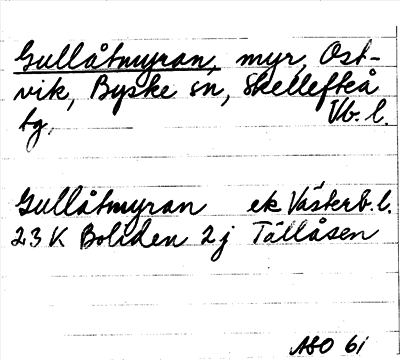 Gullåtmyran, myr, Ost-
vik, Byske sn, Skellefteå
tg, Vb. l.
Gullåtmyran ek Västerb. l.
23 K Boliden 2 j Tållåsen
ABO 61